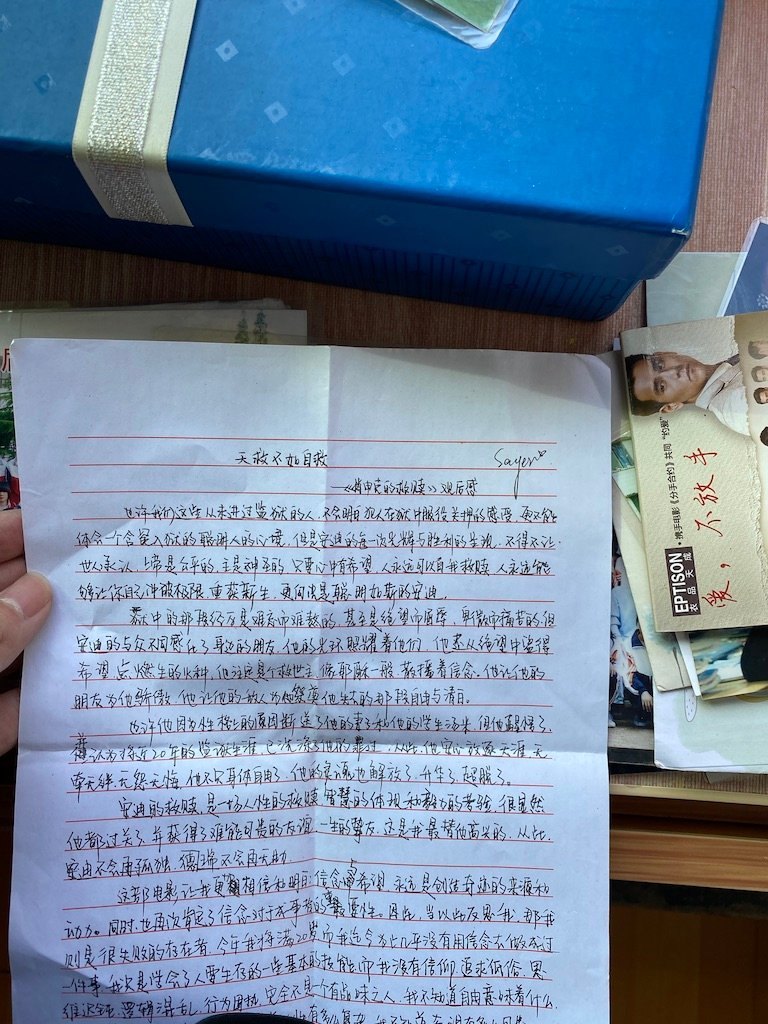 天救不如自救
Sayen
——《肖申克的救赎》观后感
也许我们这些从未进过监狱的人，不会明白犯人在狱中服役关押的感受，更不能
体会一个含冤入狱的聪明人的心境，但是安迪的每一次光辉与胜利的呈现，不得不让
世人承认，上帝是公平的，主是神圣的，只要心中有希望，人永远可以自我救赎，人永远能
够让你自己冲破极限，重获新生，更何况是聪明加斯的安迪。
狱中的那段行友是难忘而难熬的，甚至是绝望而
安迪的与众不同感化了身边的朋友，他的光环照耀着他们，他还从绝望中觅得
希望，点燃生的火种，他这真是个救世主，像耶稣一般，散播着信念，他让他的
朋友为他骄傲，他让他的敌人为他
也许他因为性格的原因断送了他的妻子和他的
认为将近20年的监狱生涯，已洗涤了他的罪过，从此，他安心放逐天涯，无
牵无绊，无怨无悔，他不只身体自由了，他的灵魂也解放了，升华了，超脱了。
安迪的救赎，是一场人性的救赎，智慧的体现和毅力的考验，很显然
他都过关了，并获得了难能可贵的友谊，一生的挚友，这是我最替他高兴的，从此，
安迪不会再孤独，瑞德不会再无助。
这部电影让我更相信和明白：信念与希望，永远是创造奇迹的来源和
动力。同时，也再次肯定了信念对于成事者的重要性。因此，当以此反思我，那我
则是很失败的存在者，今年我将满20岁而我迄今为止几乎没有用信念去做成过
一件事，我只是学会了人要生存的一些基本的技能，而我没有信仰，追求低俗，思
维迟钝，逻辑混乱，行为固执，完全不是一个有品味之人，我不知道自由意味着什么，
·携手电影《分手合约》共同“约爱”
爱，不放手
EPTISON
衣品天成